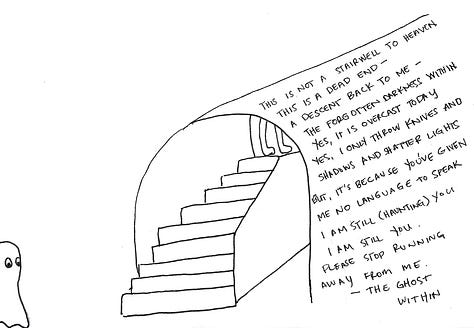 THIS IS NOT A STAIRWELL TO HEAVEN
THIS IS A DEAD END -
A DESCENT BACK TO ME -
THE FORGOTTEN DARKNESS WITHIN
YES, IT IS OVERCAST TODAY
YES, I ONLY THROW KNIVES AND
SHADOWS AND SHATTER LIGHTS
BUT, IT'S BECAUSE YOU'VE GIVEN
ME NO LANGUAGE TO SPEAK
I AM STILL (HAUNTING) YOU
I AM STILL YOU.
PLEASE STOP RUNNING
AWAY FROM ME.
- THE GHOST
WITHIN